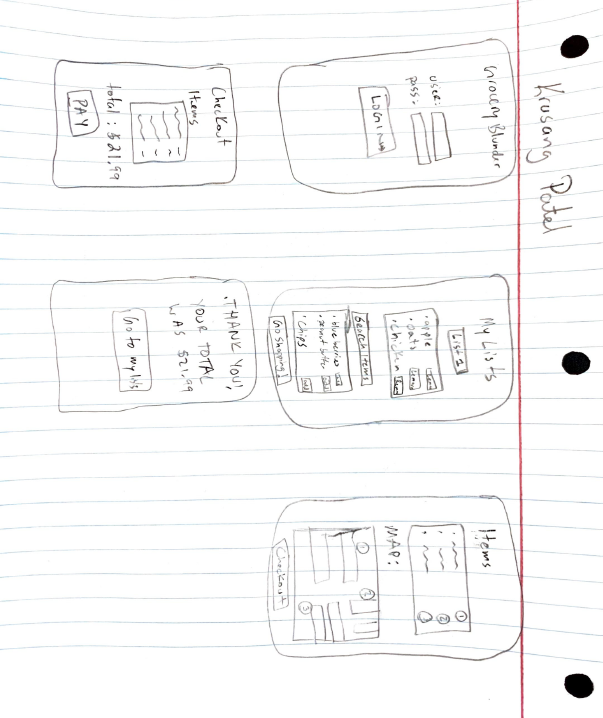 Krusang Patel
Grocery Blunder
user:
pass:
LOGIN
My Lists
List 1
• apple
• oats
• chicken
Search Items
• blueberries
• peanut butter
• chips
Go Shopping!
Items
1
2
3
MAP:
1
2
3
Checkout
Checkout
Items
total: $21.99
PAY
THANK YOU!
YOUR TOTAL
WAS $21.99
Go to my lists